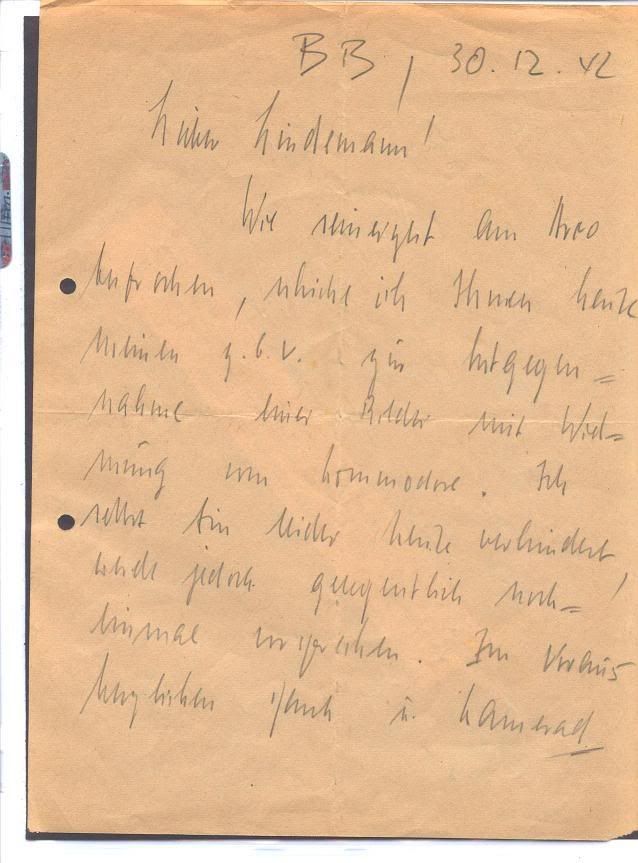 BB, 30.12.42
Lieber Lindemann!
Wie seinerzeit am
besprochen, schicke ich Ihnen heute
meinen z.b.V. zur Entgegen=
nahme eines Bildes mit Wid=
mung vom Kommodore. Ich
selbst bin leider heute verhindert,
werde jedoch gelegentlich noch=
einmal vorsprechen. Im Voraus
herzlichen Dank u. Kamerad